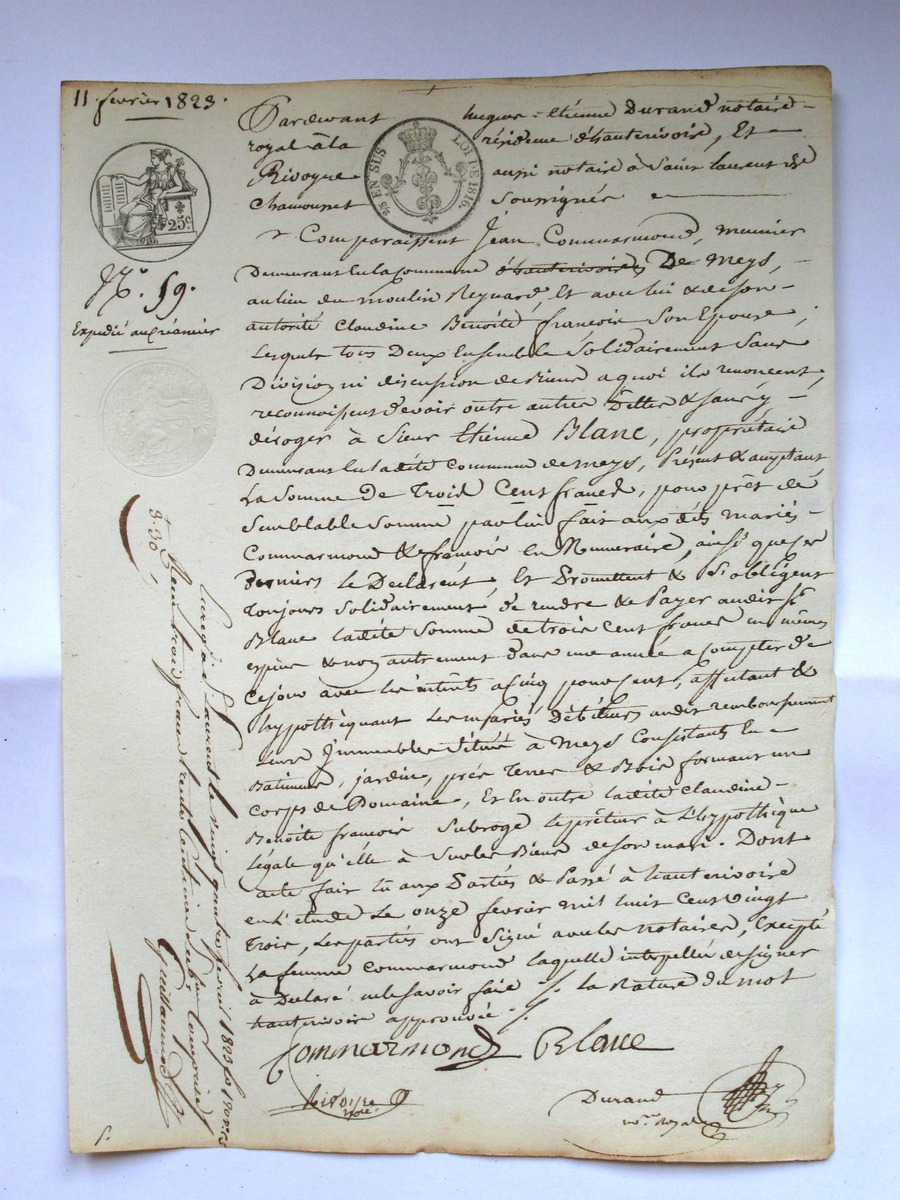 11 fevrier 1823.
Pardevant hugues-Etienne Durand notaire
royal à la résidence d'hauterivoire, Et
Rivoyre aussi notaire à Saint Laurent de
Chamousset Soussignés
Comparaissent Jean Commarmond, meunier
Demeurant En la Commune d'hauterivoire De Meys,
au lieu du moulin Reynard, Et avec lui & de son
autorité Claudine Benoite françois Son Epouse,
Lesquels tous Deux Ensemble Solidairement Sans
Division ni discussion de Biens a quoi ils renoncent,
reconnoissent devoir outre autres Dettes & Sans y
déroger à Sieur Etienne Blanc, propriétaire
Demeurant En ladite Commune de meys, Présent & acceptant
La Somme De Trois Cent francs, pour prêt de
Semblable Somme par lui fait aux dits mariés
Commarmond & françois En Numeraire, ainsi que ces
Derniers le Declarent, Et Promettent & S'obligent
Toujours Solidairement de rendre & Payer audit Sr
Blanc ladite Somme de trois Cent francs en mêmes
espèces & non autrement dans une année a Compter de
Ce jour avec les intérêts a Cinq pour Cent, affectant &
hypothéquant Les mariés Débiteurs audit remboursement
Leurs Immeubles Situés à Meys Consistants En
Batiments, jardin, prés Terres & Bois formant un
Corps de Domaine, Et En outre ladite Claudine
Benoite françois Subroge le prêteur à L'hypothèque
Légale qu'elle à Sur les Biens de Son mari. Dont
acte fait lu aux Parties & Passé à hauterivoire
en L'étude Le onze fevrier mil huit Cent vingt
Trois, Les parties ont Signé avec les notaires, Excepté
La femme Commarmond laquelle interpellée de signer
à Declaré ne le Savoir faire ./. La Rature du mot
hauterivoire approuvée ./.
Commarmond Blanc
Rivoyre
nore.
Durand
nre. royal
25 c.
2/5 EN SUS LOI DE 1816.
No. 59.
Expedié au créancier
Enreg. à St Laurent le vingt quatre fevrier 1823 fo
Reçu trois francs trente Centimes
3.30
Guillaumet